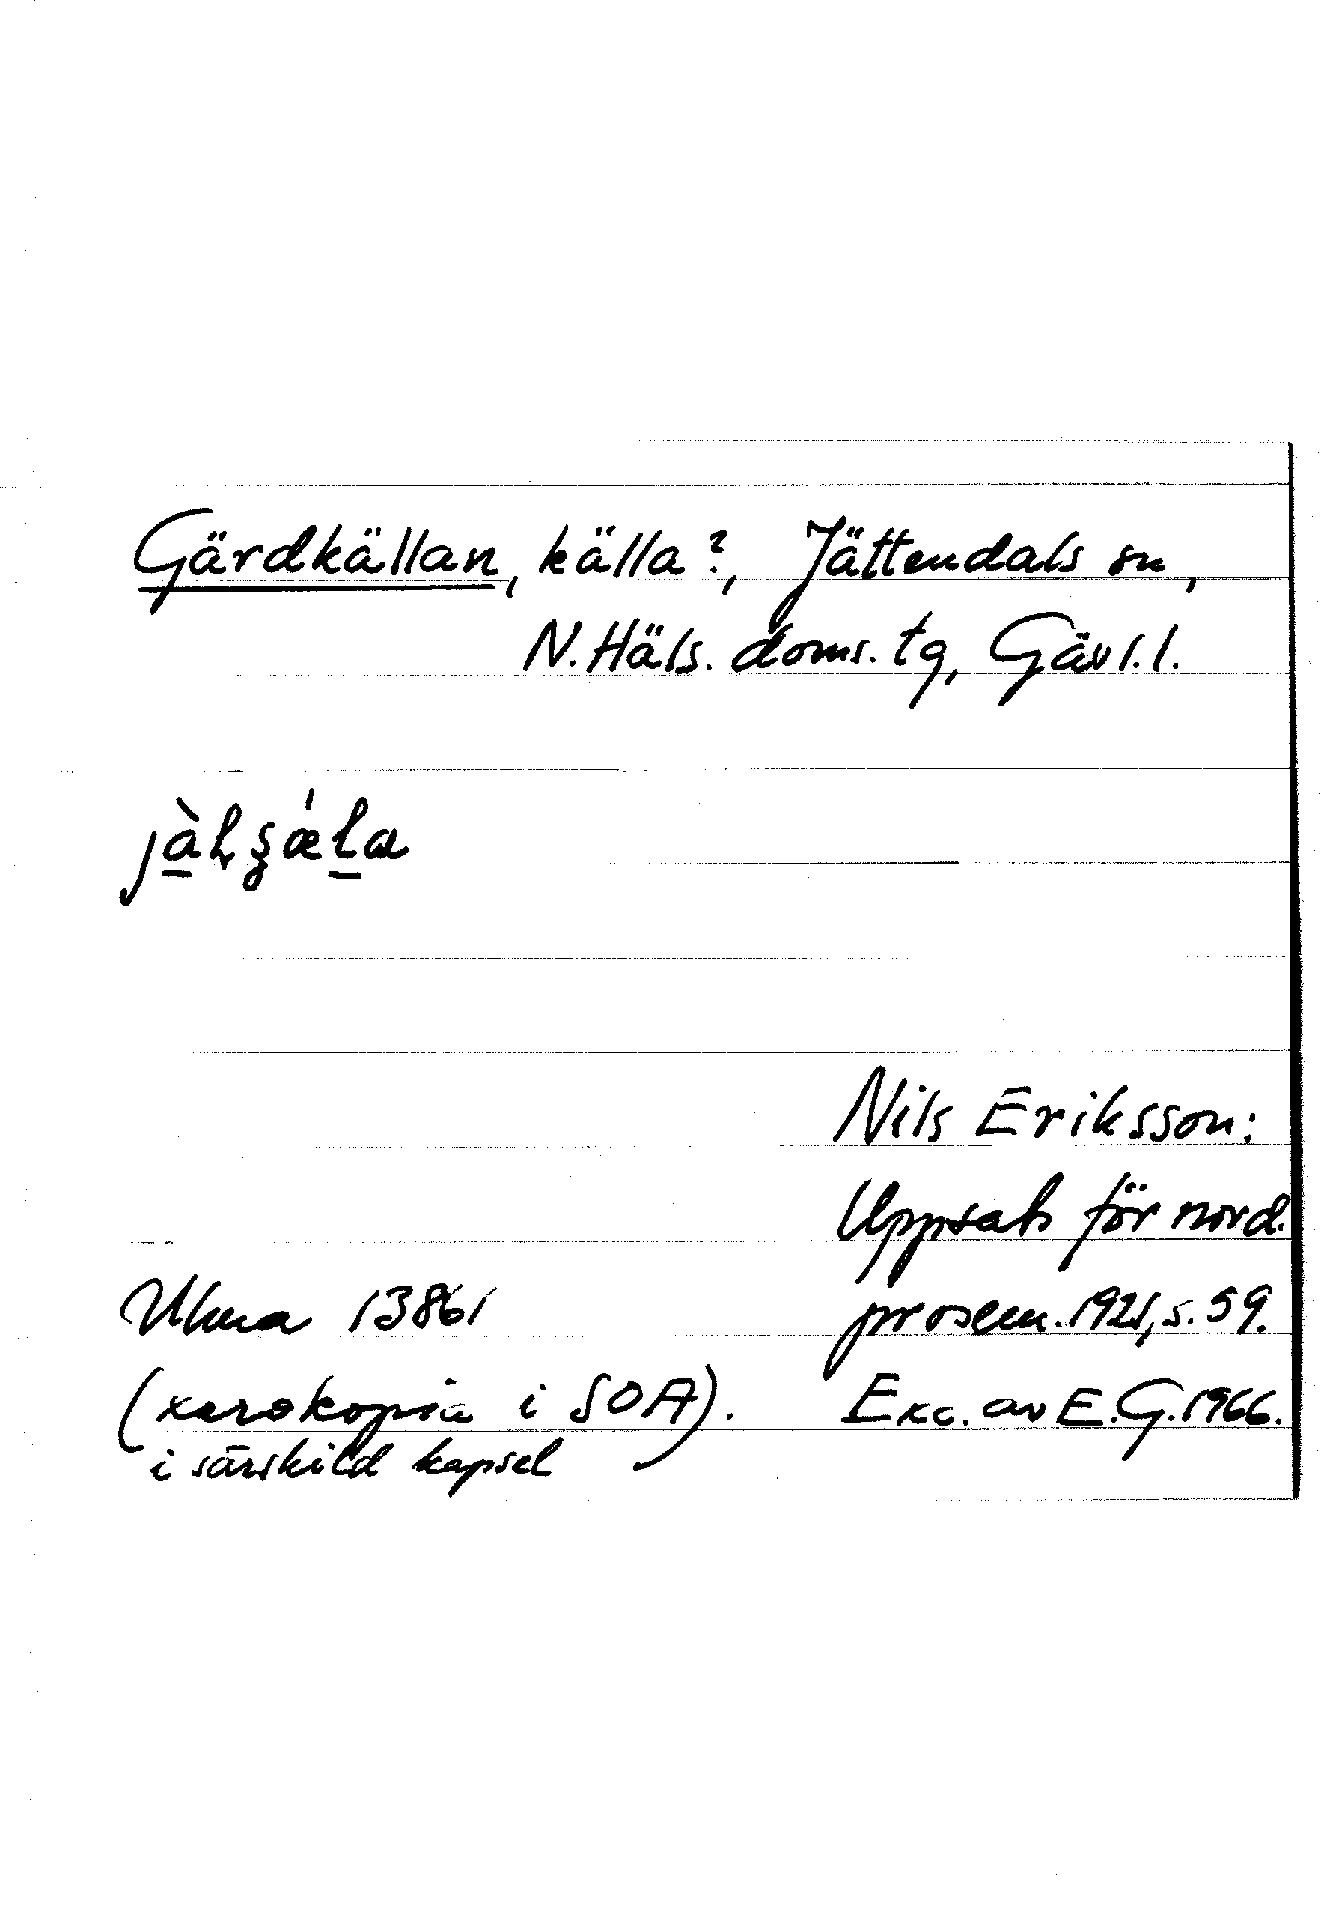 Gärdkällan, källa?, Jättendals sn,
N. Häls. doms. tg, Gävl. l.
Nils Eriksson:
Uppsats för nord.
Ulma 13861 prosem. 1921, s. 59.
(xerokopia i SOA). Exc. av E.G. 1966.
i särskild kapsel